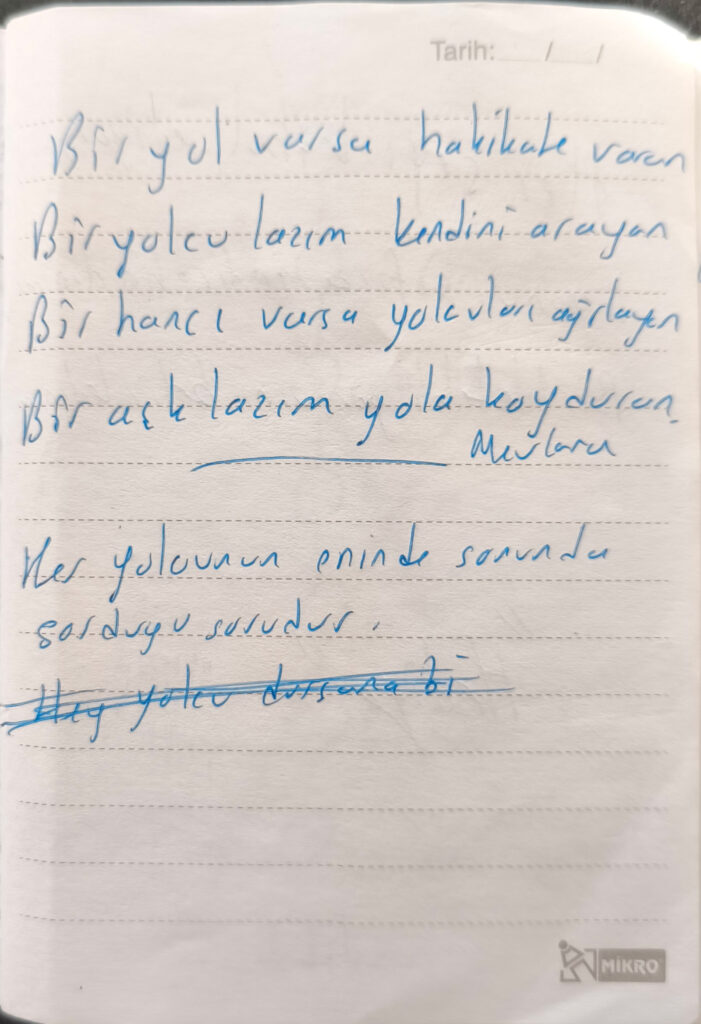 Tarih: / /
Bir yol varsa hakikate varan
Bir yolcu lazım kendini arayan
Bir hancı varsa yolcuları ağırlayan
Bir aşk lazım yola koyduran.
Mevlana
Her yolcunun eninde sonunda
sorduğu sorudur.
Hey yolcu dursana bi
MİKRO